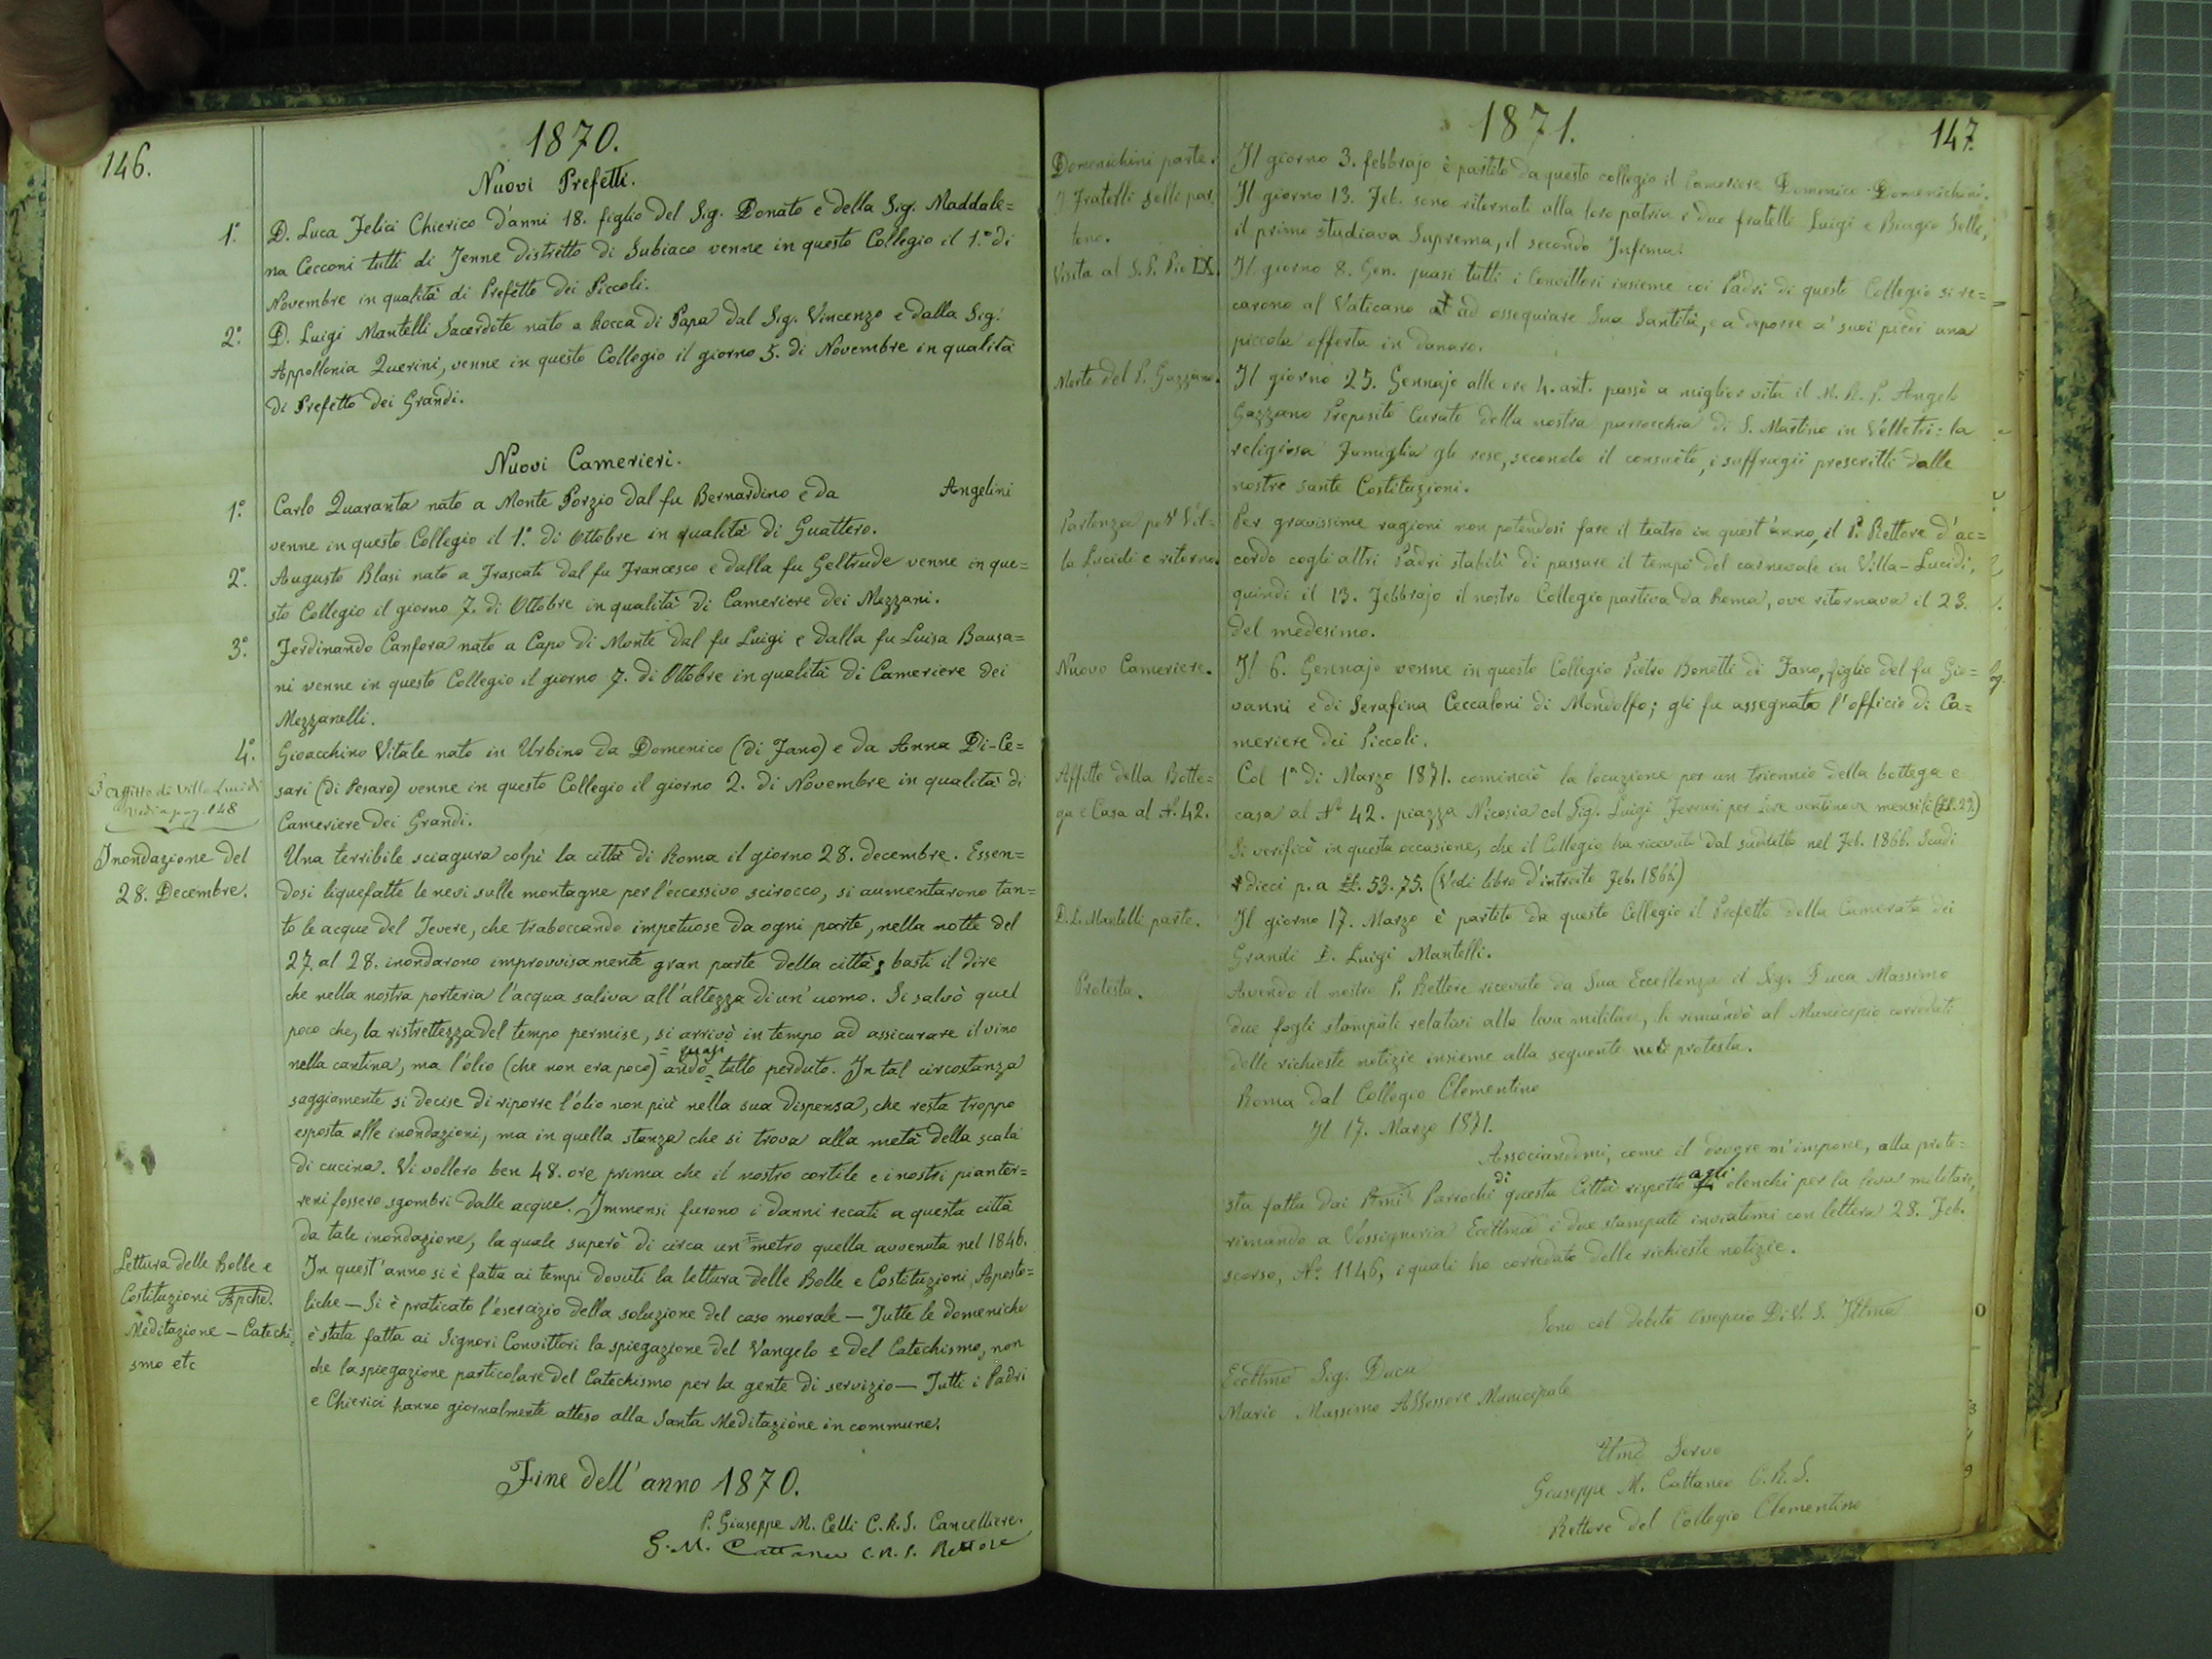 146.
1870.
Nuovi Prefetti.
1.° D. Luca Felici Chierico d'anni 18. figlio del Sig. Donato e della Sig. Maddale=
na Cecconi tutti di Jenne distretto di Subiaco venne in questo Collegio il 1.° di
Novembre in qualità di Prefetto dei Piccoli.
2.° D. Luigi Mantelli Sacerdote nato a Rocca di Papa dal Sig. Vincenzo e dalla Sig.
Appollonia Querini, venne in questo Collegio il giorno 5. di Novembre in qualità
di Prefetto dei Grandi.
Nuovi Camerieri.
1.° Carlo Quaranta nato a Monte Porzio dal fu Bernardino e da Angelini
venne in questo Collegio il 1.° di Ottobre in qualità di Guattero.
2.° Augusto Blasi nato a Frascati dal fu Francesco e dalla fu Geltrude venne in que=
sto Collegio il giorno 7. di Ottobre in qualità di Cameriere dei Mezzani.
3.° Ferdinando Canfora nato a Capo di Monte dal fu Luigi e dalla fu Luisa Bausa=
ni venne in questo Collegio il giorno 7. di Ottobre in qualità di Cameriere dei
Mezzanelli.
4.° Gioacchino Vitale nato in Urbino da Domenico (di Fano) e da Anna Di-Ce=
sari (di Pesaro) venne in questo Collegio il giorno 2. di Novembre in qualità di
Cameriere dei Grandi.
affitto di Villa Lucidi
Vedi a pag. 148
Inondazione del
28. Decembre.
Una terribile sciagura colpì la città di Roma il giorno 28. decembre. Essen=
dosi liquefatte le nevi sulle montagne per l'eccessivo scirocco, si aumentarono tan=
to le acque del Tevere, che traboccando impetuose da ogni parte, nella notte del
27. al 28. inondarono improvvisamente gran parte della città; basti il dire
che nella nostra porteria l'acqua saliva all'altezza di un' uomo. Si salvò quel
poco che, la ristrettezza del tempo permise, si arrivò in tempo ad assicurare il vino
nella cantina, ma l'olio (che non era poco) andò = quasi = tutto perduto. In tal circostanza
saggiamente si decise di riporre l'olio non più nella sua dispensa, che resta troppo
esposta alle inondazioni, ma in quella stanza che si trova alla metà della scala
di cucina. Vi vollero ben 48. ore prima che il nostro cortile e i nostri pianter=
reni fossero sgombri dalle acque. Immensi furono i danni recati a questa città
da tale inondazione, la quale superò di circa un metro quella avvenuta nel 1846.
Lettura delle Bolle e
Costituzioni Apche.
Meditazione - Catechi=
smo etc
In quest'anno si è fatta ai tempi dovuti la lettura delle Bolle e Costituzioni Aposto=
liche — Si è praticato l'esercizio della soluzione del caso morale — Tutte le domeniche
è stata fatta ai Signori Convittori la spiegazione del Vangelo e del Catechismo, non
che la spiegazione particolare del Catechismo per la gente di servizio — Tutti i Padri
e Chierici hanno giornalmente atteso alla Santa Meditazione in commune.
Fine dell'anno 1870.
P. Giuseppe M. Celli C.R.S. Cancelliere.
G. M. Cattaneo C.R.S. Rettore
1871.
147.
Domenichini parte.
Il giorno 3. febbrajo è partito da questo collegio il Cameriere Domenico Domenichini.
I Fratelli Selli par=
tono.
Il giorno 13. Feb. sono ritornati alla loro patria i due fratelli Luigi e Biagio Selli,
il primo studiava Suprema, il secondo Infima.
Visita al S. P. Pio IX.
Il giorno 8. Gen. quasi tutti i Convittori insieme coi Padri di questo Collegio si re=
carono al Vaticano ad ossequiare Sua Santità, e a deporre a' suoi piedi una
piccola offerta in danaro.
Morte del P. Gazzano.
Il giorno 25. Gennajo alle ore 4. ant. passò a miglior vita il M. R. P. Angelo
Gazzano Preposito Curato della nostra parrocchia di S. Martino in Velletri: la
religiosa famiglia gli rese, secondo il consueto, i suffragii prescritti dalle
nostre sante Costituzioni.
Partenza per Vil=
la Lucidi e ritorno.
Per gravissime ragioni non potendosi fare il teatro in quest'anno, il P. Rettore d'ac=
cordo cogli altri Padri stabilì di passare il tempo del carnevale in Villa-Lucidi,
quindi il 13. Febbrajo il nostro Collegio partiva da Roma, ove ritornava il 23.
del medesimo.
Nuovo Cameriere.
Il 6. Gennajo venne in questo Collegio Pietro Bonetti di Fano, figlio del fu Gio=
vanni e di Serafina Ceccaloni di Mondolfo; gli fu assegnato l'officio di Ca=
meriere dei Piccoli.
Affitto della Botte=
ga e Casa al N. 42.
Col 1° di Marzo 1871. cominciò la locazione per un triennio della bottega e
casa al N° 42. piazza Nicosia col Sig. Luigi Ferrari per Lire ventinove mensili (££. 29.)
Si verificò in questa occasione, che il Collegio ha ricevuto dal suddetto nel Feb. 1866. Scudi
dieci p. a ££. 53. 75. (Vedi libro d'introito Feb. 1866.)
D. L. Mantelli parte.
Il giorno 17. Marzo è partito da questo Collegio il Prefetto della Camerata dei
Grandi D. Luigi Mantelli.
Protesta.
Avendo il nostro P. Rettore ricevuto da Sua Eccellenza il Sig. Duca Massimo
due fogli stampati relativi alla leva militare, li rimandò al Municipio corredati
delle richieste notizie insieme alla seguente protesta.
Roma dal Collegio Clementino
Il 17. Marzo 1871.
Associandomi, come il dovere m'impone, alla prote=
sta fatta dai Parrochi di questa Città rispetto agli elenchi per la leva militare,
rimando a Vossignoria Eccllma i due stampati inviatimi con lettera 28. Feb.
scorso, N.° 1146, i quali ho corredato delle richieste notizie.
Sono col debito ossequio Di V. S. Illma
Eccllmo Sig. Duca
Mario Massimo Assessore Municipale
Servo
Giuseppe M. Cattaneo C.R.S.
Rettore del Collegio Clementino